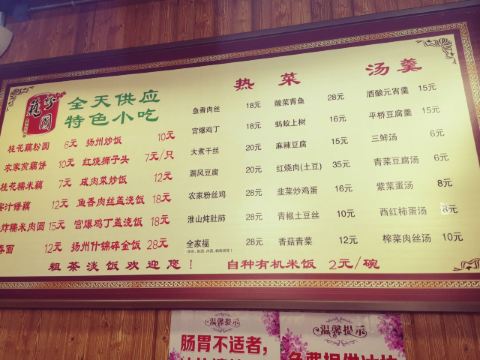 全天供应
特色小吃
桂花藕粉圆 6元 扬州炒饭 10元
农家荒藕饼 10元 红烧狮子头 7元/只
桂花糯米藕 7元 咸肉菜炒饭 12元
12元 鱼香肉丝盖浇饭 18元
炸糯米肉圆 15元 宫爆鸡丁盖浇饭 18元
12元 扬州什锦碎金饭 28元
热菜
鱼香肉丝 18元 酸菜青鱼 28元
宫爆鸡丁 18元 蚂蚁上树 16元
大煮干丝 20元 麻辣豆腐 15元
20元 红烧肉(土豆) 35元
农家粉丝鸡 28元 韭菜炒鸡蛋 16元
淮山炖肚肺 28元 青椒土豆丝 10元
全家福 28元 香菇青菜 12元
汤羹
酒酿元宵羹 15元
平桥豆腐羹 15元
三鲜汤 6元
青菜豆腐汤 5元
紫菜蛋汤 8元
西红柿蛋汤 8元
榨菜肉丝汤 10元
粗茶淡饭欢迎您! 自种有机米饭 2元/碗
温馨提示
肠胃不适者,
温馨提示